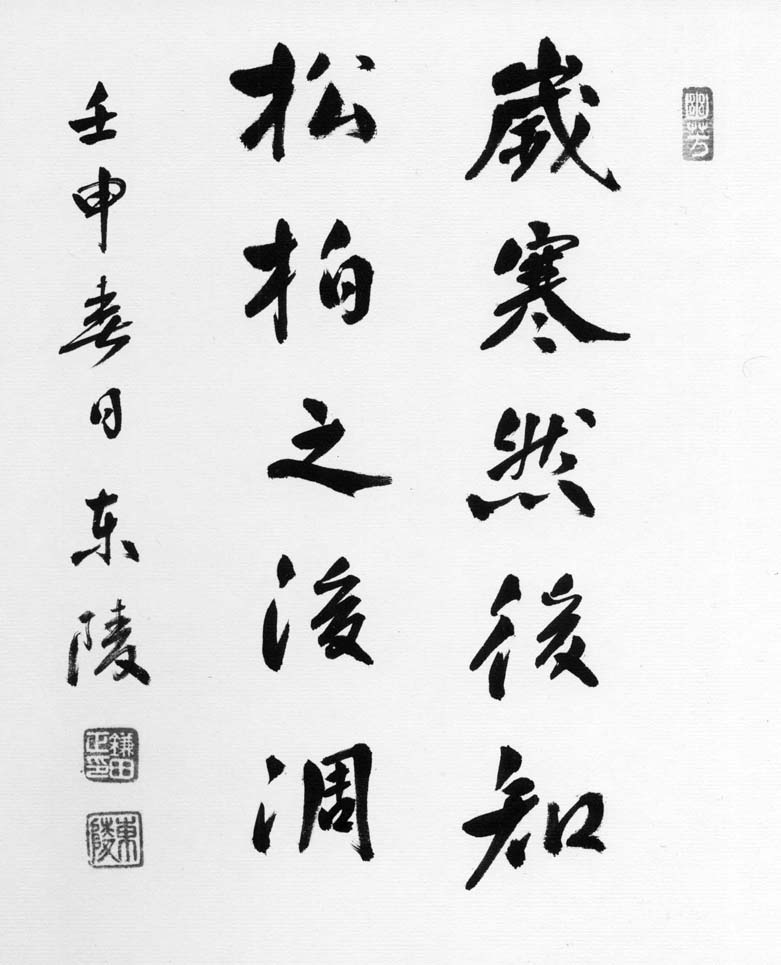 幽芳
歲寒然後知
松柏之後凋
壬申春日东陵
鎌田正印
東陵